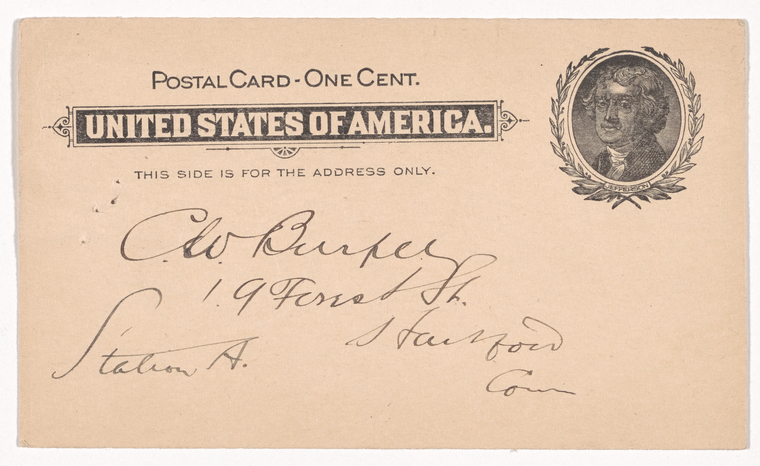 POSTAL CARD - ONE CENT.
UNITED STATES OF AMERICA.
JEFFERSON
THIS SIDE IS FOR THE ADDRESS ONLY.
C. W. Burpee
19 Forest St.
Hartford
Station A.
Conn